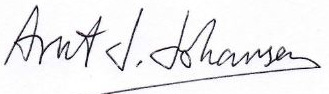 Arnt J. Johansen